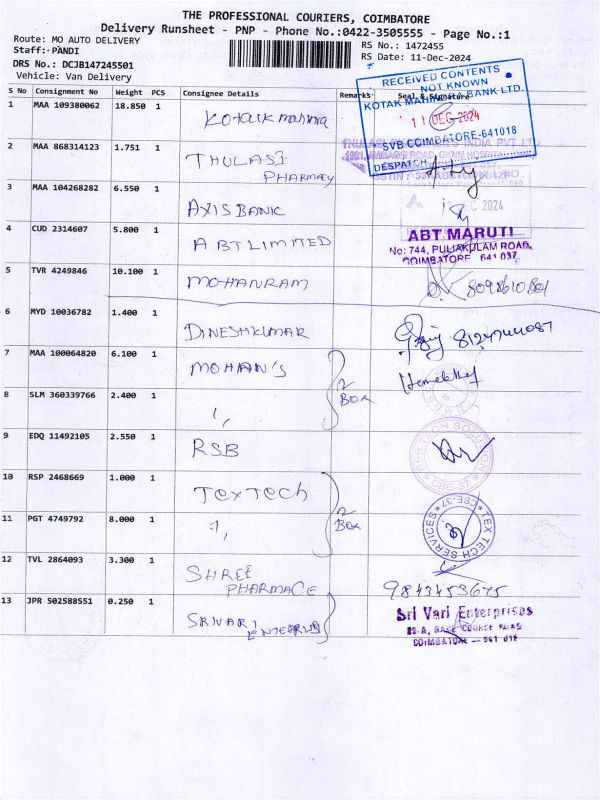 THE PROFESSIONAL COURIERS, COIMBATORE
Delivery Runsheet - PNP - Phone No.:0422-3505555 - Page No.:1
Route: MO AUTO DELIVERY
Staff:-PANDI
RS No.: 1472455
RS Date: 11-Dec-2024
DRS No.: DCJB147245501
Vehicle: Van Delivery
S No Consignment No Weight PCS Consignee Details Remarks Seal & Signature
RECEIVED CONTENTS
NOT KNOWN
KOTAK MAHINDRA BANK LTD.
11 DEC 2024
SVB COIMBATORE-641018
DESPATCH
1 MAA 109380062 18.850 1 Kotak mahinra
2 MAA 868314123 1.751 1 THULASI
PHARMAY
3 MAA 104268282 6.550 1 AXIS BANK
DEC 2024
4 CUD 2314607 5.800 1 ABT LIMITED
ABT MARUTI
No: 744, PULIAKULAM ROAD,
COIMBATORE 641 037.
5 TVR 4249846 10.100 1 MOHANRAM
6 MYD 10036782 1.400 1 DINESHKUMAR
7 MAA 100064820 6.100 1 MOHAN'S
2 BOX
8 SLM 360339766 2.400 1 ,,
9 EDQ 11492105 2.550 1 RSB
10 RSP 2468669 1.000 1 TexTech
2 BOX
11 PGT 4749792 8.000 1 ,,
TEX TECH SERVICES CBE-37
12 TVL 2864093 3.300 1 SHREE
PHARMACE
9843453675
13 JPR 502588551 0.250 1 SRIVARI
ENTERPRIS
Sri Vari Enterprises
RACE COURSE ROAD
COIMBATORE - 641 018